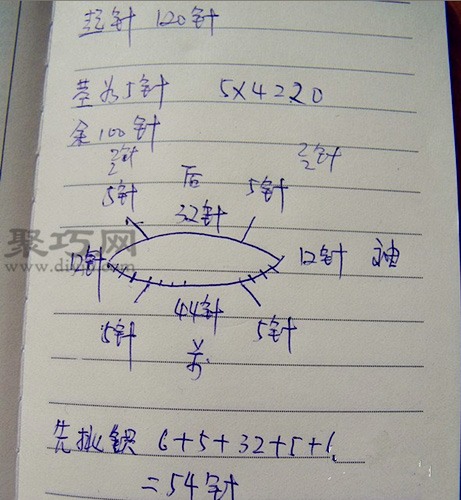 起针 120针
茎为5针 5×4=20
余100针
2针 2针
2 2
5针 后 5针
32针
12针 12针 袖
44针
5针 5针
前
先挑织 6+5+32+5+6
=54针
聚巧网